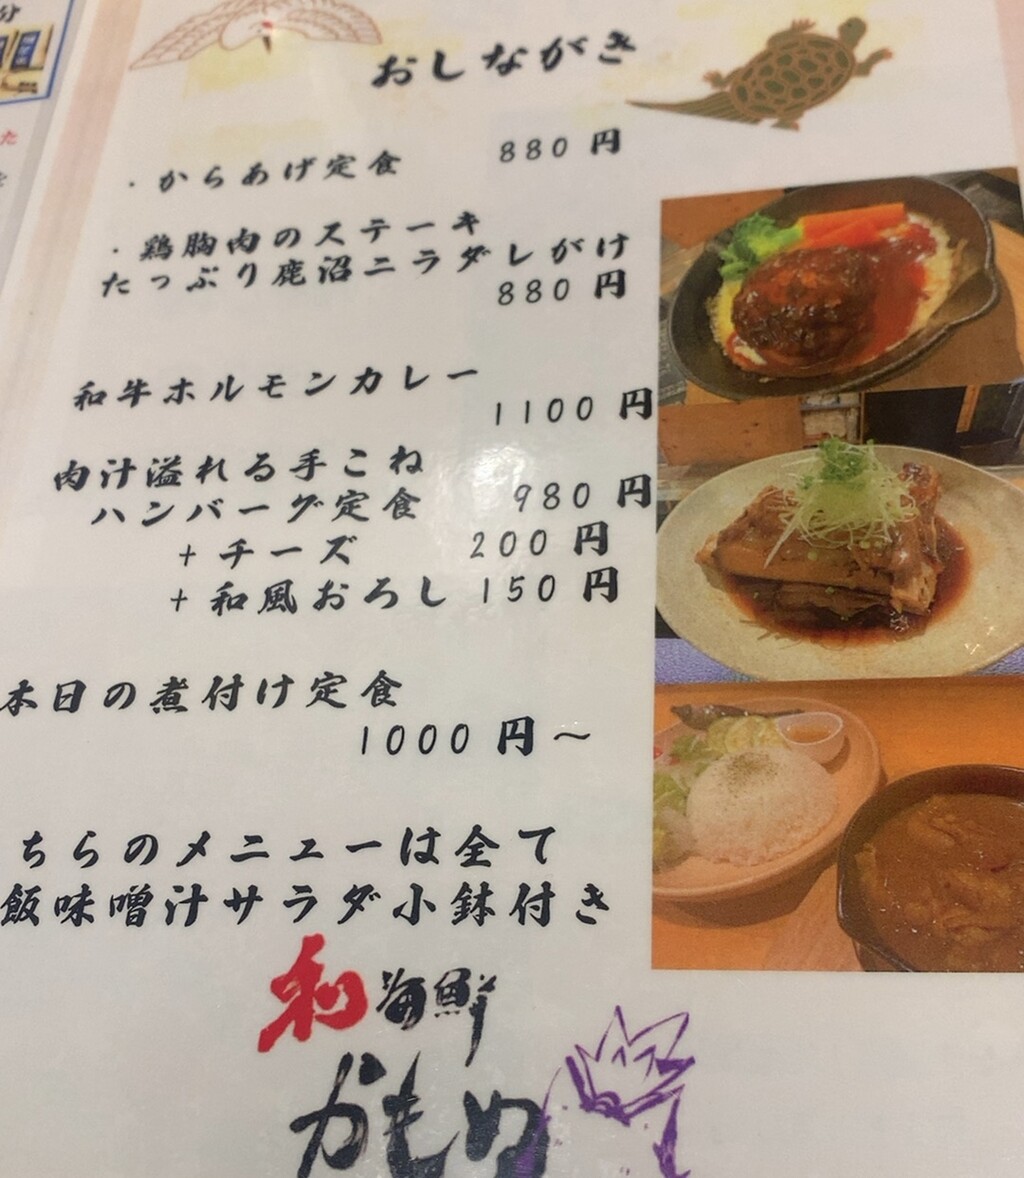 分
た
おしながき
・からあげ定食 880円
・鶏胸肉のステーキ
たっぷり鹿沼ニラダレがけ
880円
和牛ホルモンカレー
1100円
肉汁溢れる手こね
ハンバーグ定食 980円
+チーズ 200円
+和風おろし 150円
本日の煮付け定食
1000円~
ちらのメニューは全て
飯味噌汁サラダ小鉢付き
和海鮮
かもめ